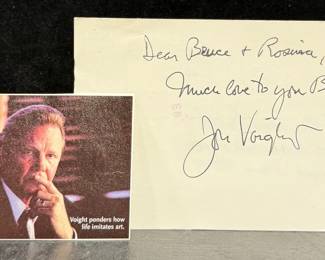 Dear Bruce + Rosina,
Much love to you B
Jon Voight
Voight ponders how
life imitates art.